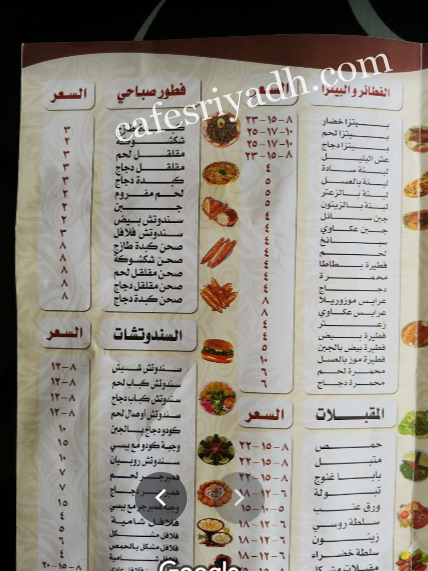 cafesriyadh.com
الفطائر والبيتزا السعر
بيتزا خضار ٨-١٥-٢٣
بيتزا لحم ١٠-١٧-٢٥
بيتزا دجاج ١٠-١٧-٢٥
عش البلبل ٨-١٥-٢٣
لبنة سادة ٤
لبنة بالعسل ٥
لبنة بالزعتر ٥
لبنة بالزيتون ٥
جبن سائل ٤
جبن عكاوي ٤
سبانخ ٤
لحم ٤
فطيرة بطاطا ٤
محمرة ٤
دجاج ٤
عرايس موزوريلا ٨
عرايس عكاوي ٨
زعتر ٤
فطيرة بيض ٤
فطيرة بيض بالجبن ٥
فطيرة موز بالعسل ١٠
محمرة لحم ٦
محمرة دجاج ٦
المقبلات السعر
حمص ٨-١٥-٢٢
متبل ٨-١٥-٢٢
بابا غنوج ٨-١٥-٢٢
تبولة ٦-١٢-١٨
ورق عنب ٥-١٠-١٥
سلطة روسي ٦-١٢-١٨
زيتون
سلطة خضراء ٦-١٢-١٨
مقبلات مشكل
فطور صباحي السعر
٣
شكشوكة ٢
مقلقل لحم ٣
مقلقل دجاج ٣
كبدة دجاج ٣
لحم مفروم ٣
جبن ٢
سندوتش بيض ٢
سندوتش فلافل ٣
صحن كبدة طازج ٨
صحن شكشوكة ٨
صحن مقلقل لحم ٨
صحن مقلقل دجاج ٨
صحن كبدة دجاج ٨
السندوتشات السعر
سندوتش شيش ٨-١٢
سندوتش كباب لحم ٨-١٢
سندوتش كباب دجاج ٨-١٢
سندوتش اوصال لحم ٨-١٢
كودو دجاج بالجبن ١٠
وجبة كودو مع بيبسي ١٥
سندوتش روبيان ١٠
همبرجر لحم ٧
دجاج ٧
مع بيبسي ١٥
فلافل شامية ٤
فلافل مشكل ٥
فلافل مشكل بالحمص ٤
٤
٨-١٥-٢٠
Google